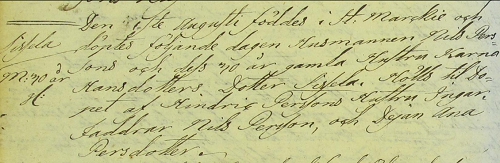 Den 1ste Augusti föddes i St. Markie och
döptes följande dagen Husmannen Nils Per-
Sissela
sons och dess 40 år gamla Hustru Karna
M: 40 år
Hansdotters Dotter Sissela. Hölts til Do-
pet af Hindric Persons Hustru Ingar.
faddrar Nils Person, och Pijan Ana
Persdotter.